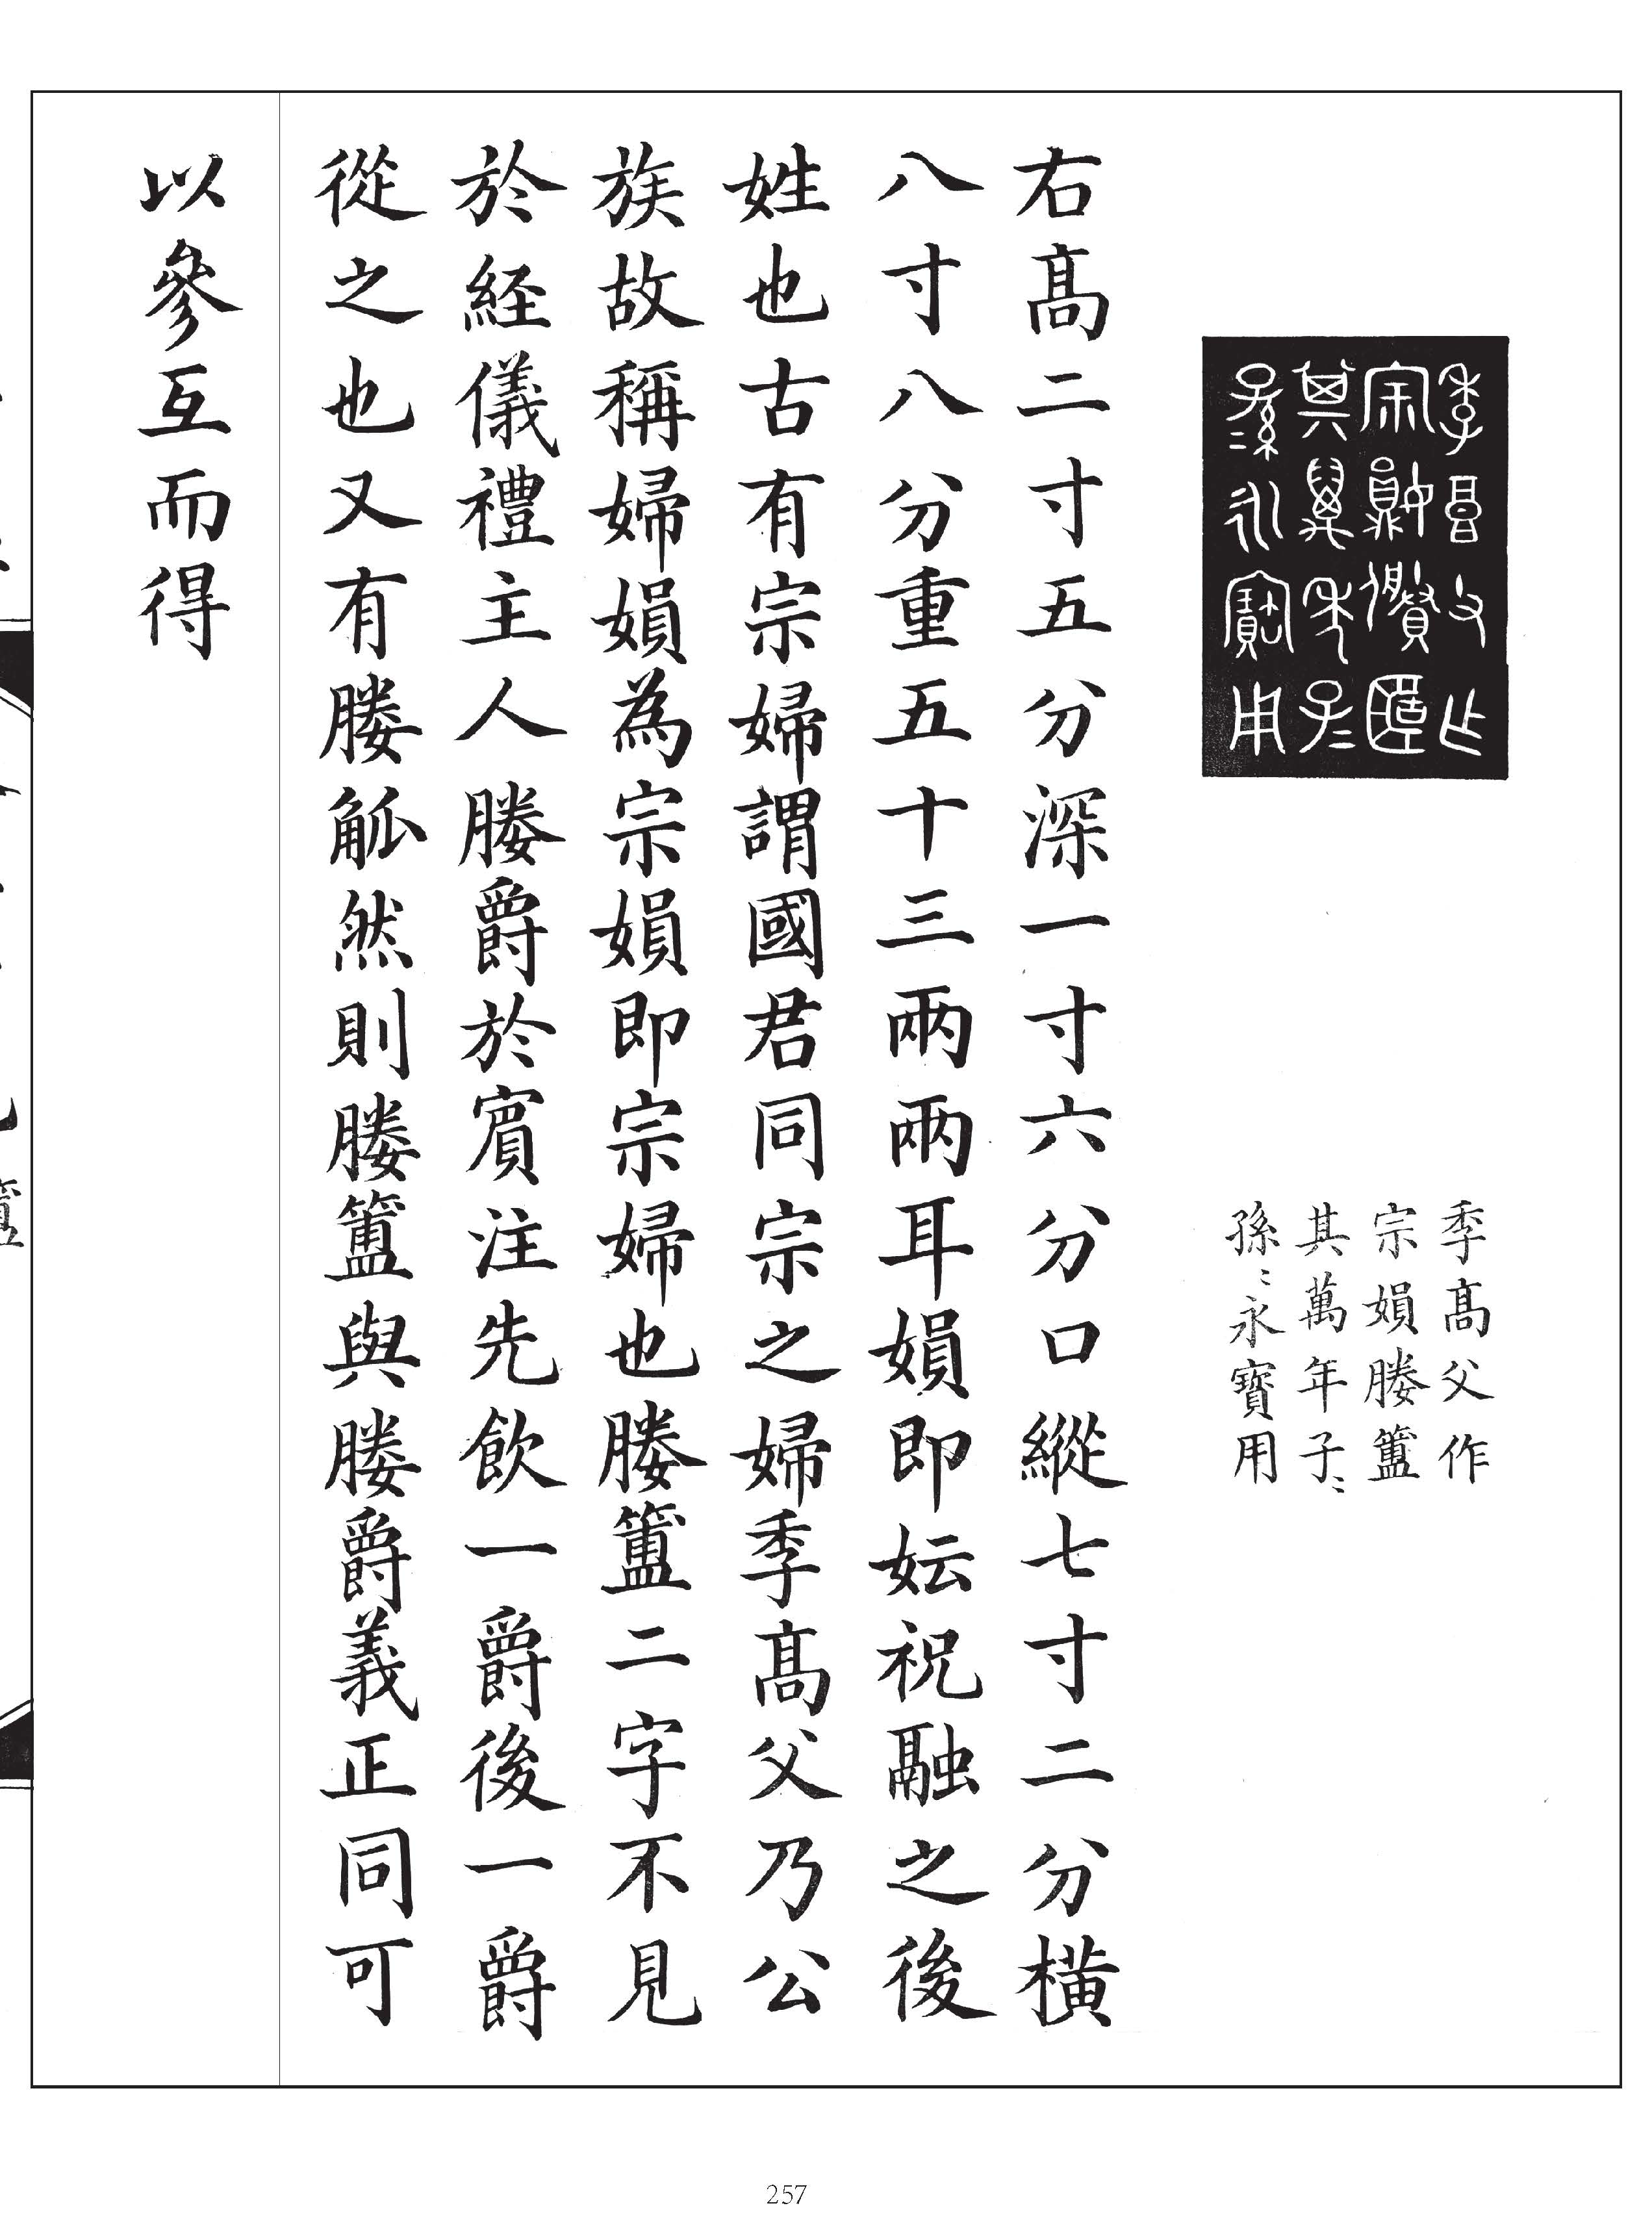 季高父作
宗娟媵簠
其萬年子〻
孫〻永寶用
右高二寸五分深一寸六分口縱七寸二分橫
八寸八分重五十三兩兩耳娟即妘祝融之後
姓也古有宗婦謂國君同宗之婦季高父乃公
族故稱婦娟為宗娟即宗婦也媵簠二字不見
於経儀禮主人媵爵於賓注先飲一爵後一爵
從之也又有媵觚然則媵簠與媵爵義正同可
以參互而得
257